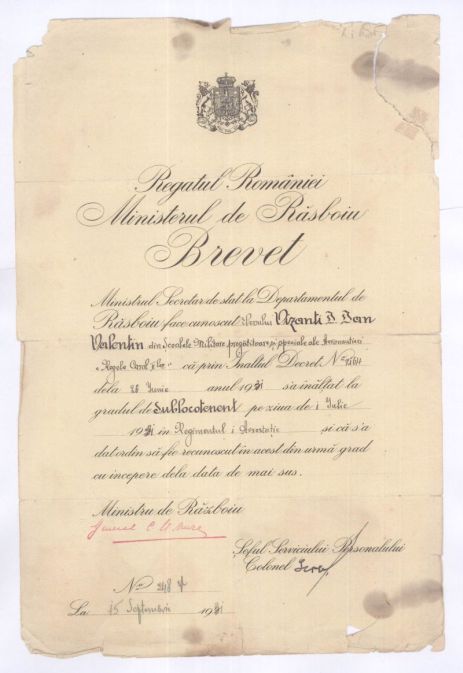 Regatul României
Ministerul de Răsboiu
Brevet
Ministrul Secretar de stat la Departamentul de
Răsboiu face cunoscut Vizanti B. Dan
Valentin din Scoalele Militare pregătitoare și speciale ale Aeronauticei
„Regele Carol că prin Înaltul Decret No
dela 26 Iunie anul 1931 s'a înălțat la
gradul de Sublocotenent pe ziua de 1 Iulie
1931 în Regimentul 1 Aerostație și că s'a
dat ordin să fie recunoscut în acest din urmă grad
cu începere dela data de mai sus.
Ministru de Războiu
General
Șeful Serviciului Personalului
Colonel
No 248
La 15 Septembrie 1931